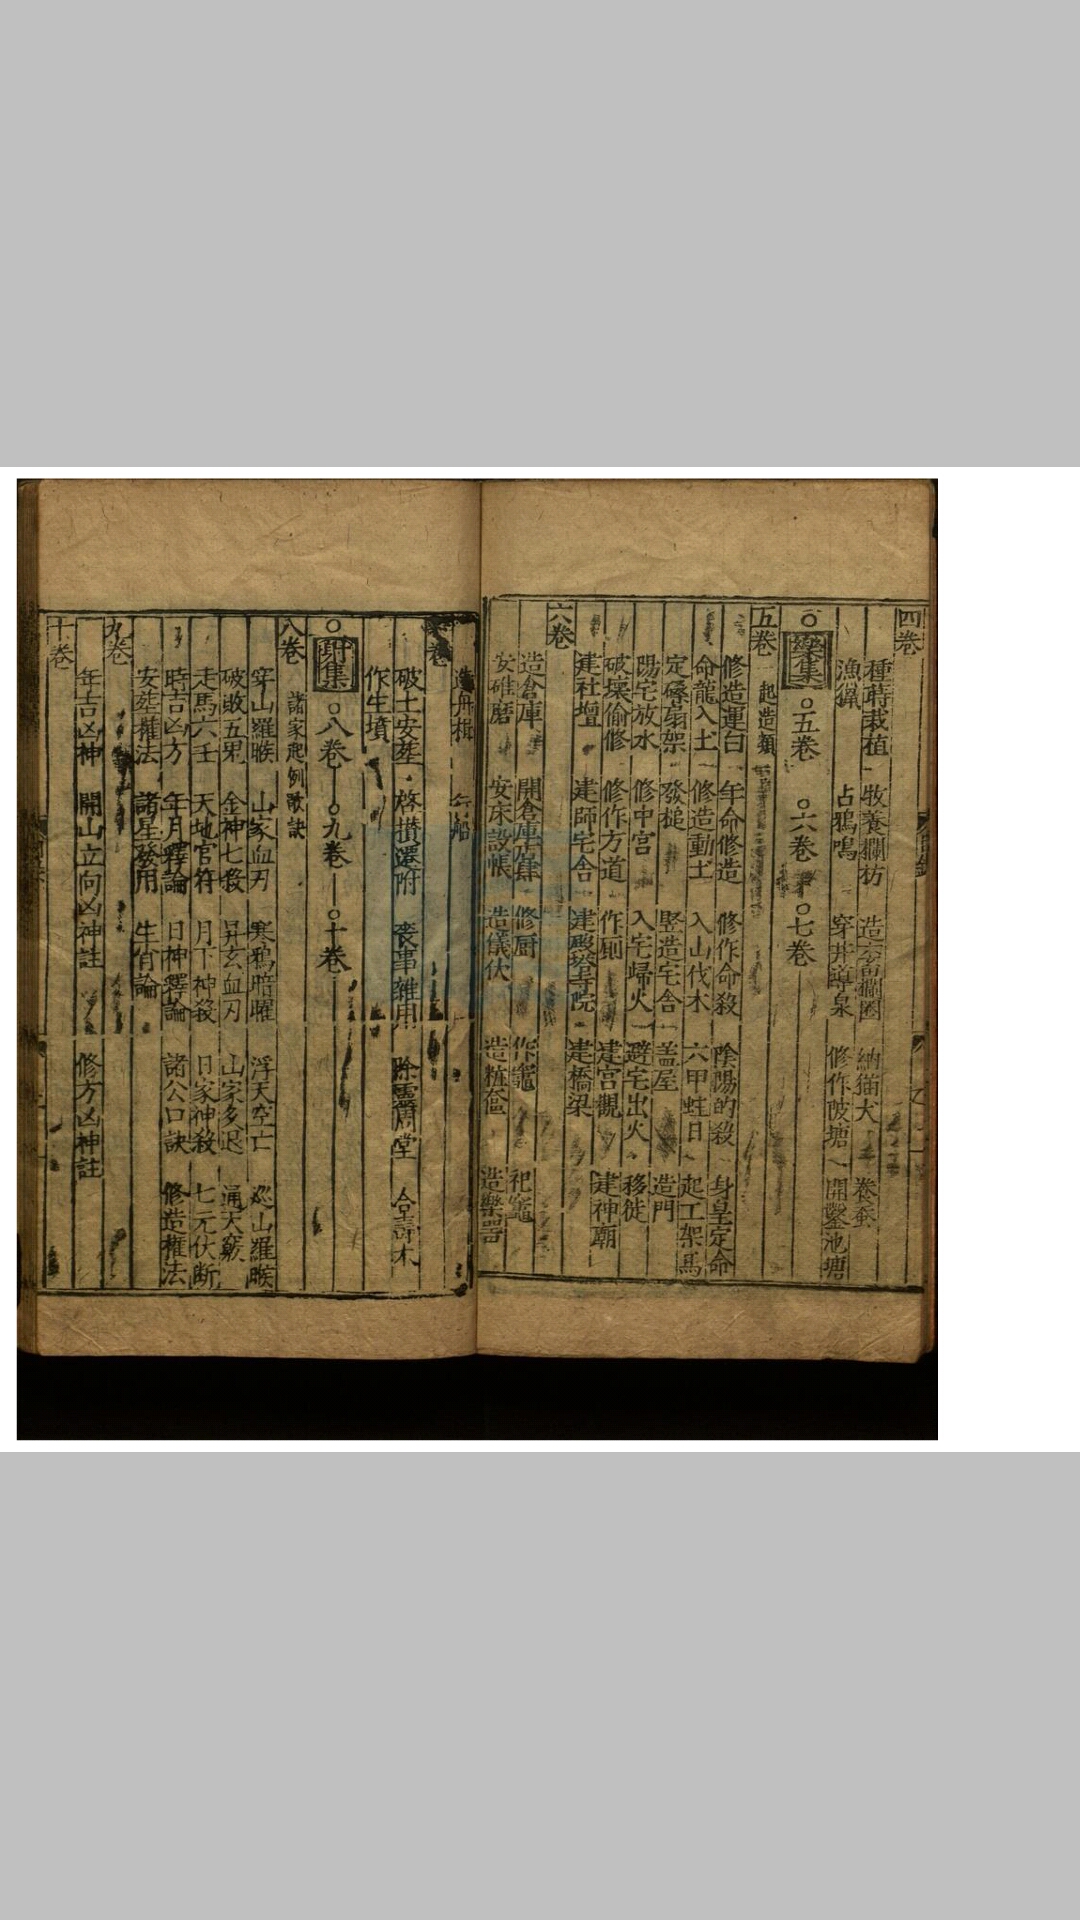 四卷
種蒔栽植 牧養欄枋 造六畜欄圈 納猫犬 養蚕
漁獵 占鴉鳴 穿井導泉 修作陂塘 開鑿池塘
○樂集 ○五卷 ○六卷 ○七卷
五卷 起造類
修造運白 年命修造 修作命殺 陰陽的殺 身皇定命
命龍入土 修造動土 入山伐木 六甲蛀日 起工架馬
定磉扇架 發槌 竪造宅舍 盖屋 造門
陽宅放水 修中宮 入宅歸火 避宅出火 移徙
破壞偷修 修作方道 作厠 建宮觀 建神廟
建社壇 建師宅舍 建殿塔寺院 建橋梁
六卷
造倉庫 開倉庫店肆 修厨 作竈 祀竈
安碓磨 安床設帳 造儀仗 造粧奩 造樂器
造舟楫 船
卷
破土安葬 啓攢遷附 喪事雜用 除靈周堂 合壽木
作生墳
○射集 ○八卷 ○九卷 ○十卷
八卷 諸家起例歌訣
穿山羅睺 山家血刃 寒鴉暗曜 浮天空亡 巡山羅睺
破敗五鬼 金神七殺 昇玄血刃 山家多退 通天竅
走馬六壬 天地官符 月下神殺 日家神殺 七元伏断
時吉凶方 年月釋論 日神釋論 諸公口訣 修造權法
安葬權法 諸星發用 生肖論
九卷
年吉凶神 開山立向凶神註 修方凶神註
十卷